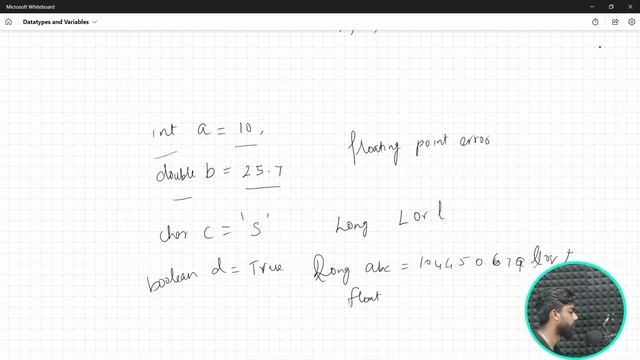 Microsoft Whiteboard
Datatypes and Variables
int a = 10,
floating point error
double b = 25.7
char c = 'S'
Long L or l
boolean d = True
Long abc = 104450679
float